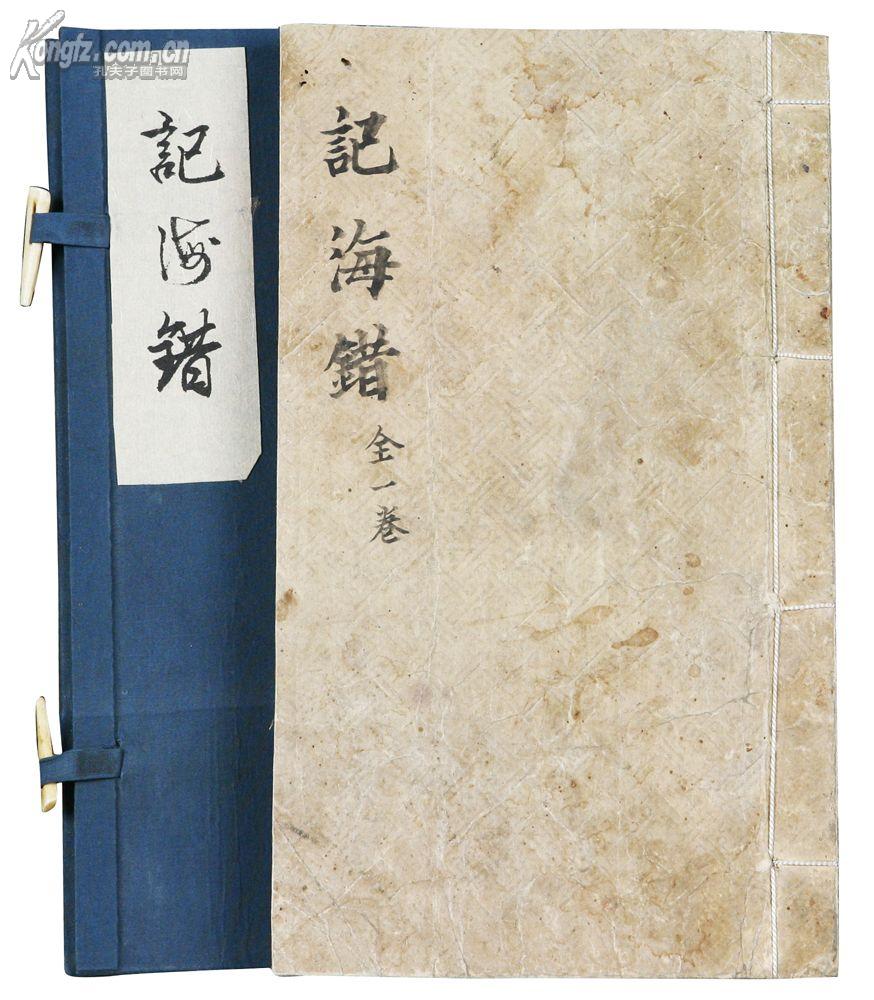 Kongfz.com.cn
孔夫子旧书网
記海錯
記海錯
全一卷